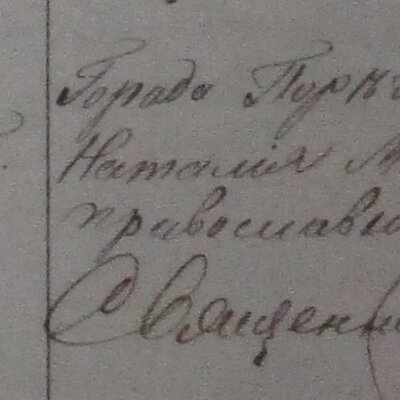 Города Турк
Наталия М
православн
Священн